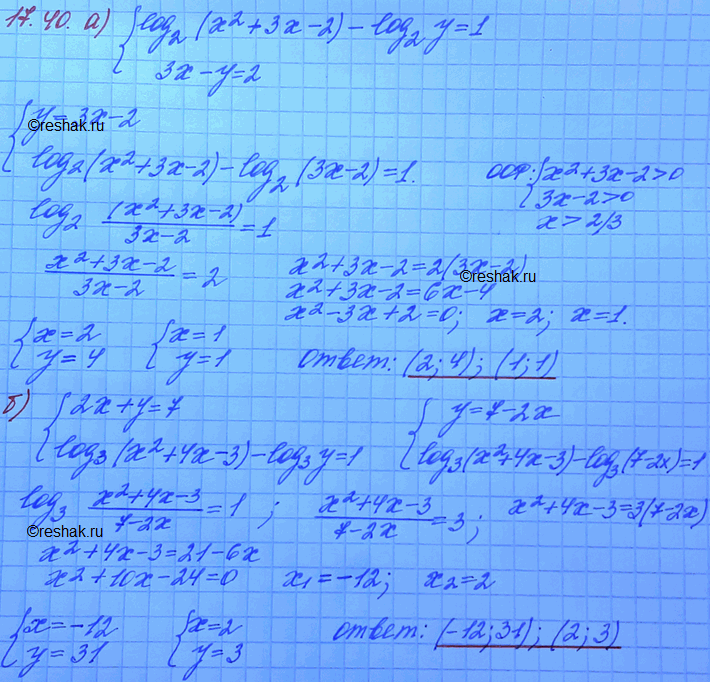 17.40. а) { log₂ (x²+3x-2) - log₂ y=1
3x-y=2
{ y=3x-2
©reshak.ru
log₂(x²+3x-2)-log₂ (3x-2)=1.
ООФ: { x²+3x-2>0
3x-2>0
x>2/3
log₂ (x²+3x-2)/3x-2 =1
x²+3x-2/3x-2 = 2
x²+3x-2=2(3x-2)
©reshak.ru
x²+3x-2=6x-4
x²-3x+2=0; x=2; x=1.
{ x=2 { x=1
y=4 y=1
ответ: (2; 4); (1; 1)
б) { 2x+y=7
log₃ (x²+4x-3)-log₃ y=1
{ y=7-2x
log₃(x²+4x-3)-log₃(7-2x)=1
log₃ x²+4x-3/7-2x =1 ; x²+4x-3/7-2x =3; x²+4x-3=3(7-2x)
©reshak.ru
x²+4x-3=21-6x
x²+10x-24=0 x₁=-12; x₂=2
{ x=-12 { x=2
y=31 y=3
ответ: (-12; 31); (2; 3)